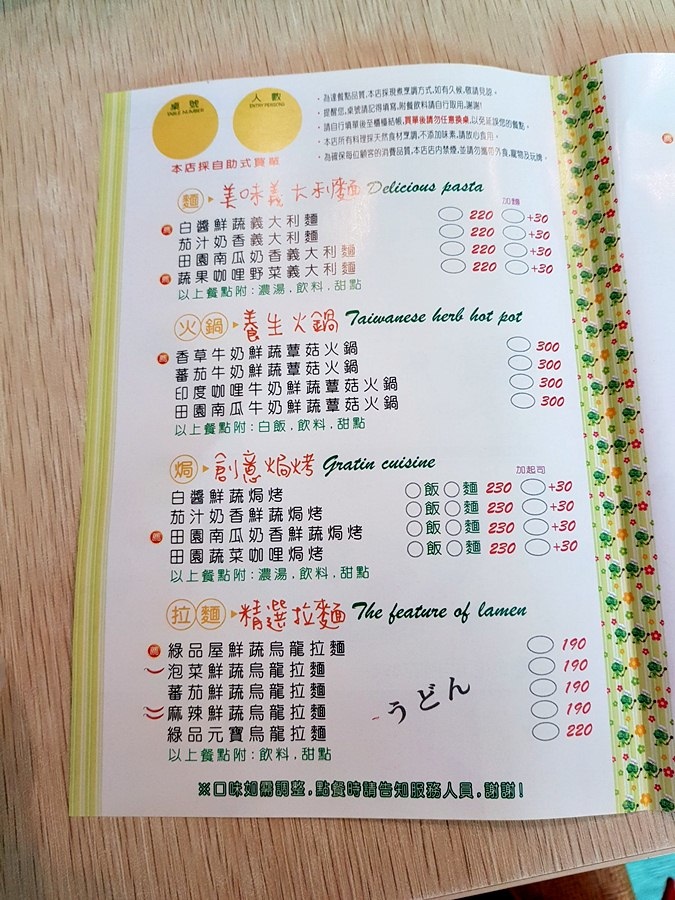 桌號
TABLE NUMBER
人數
ENTRY PERSONS
本店採自助式買單
·為達餐點品質,本店採現煮烹調方式,如有久候,敬請見諒。
·提醒您,桌號請記得填寫,附餐飲料請自行取用,謝謝!
·請自行填單後至櫃檯結帳,買單後請勿任意換桌,以免延誤您的餐點。
·本店所有料理採天然食材烹調,不添加味素,請放心食用。
·為確保每位顧客的消費品質,本店店內禁煙,並請勿攜帶外食,寵物及玩牌。
麵 美味義大利麵 Delicious pasta
加麵
薦 白醬鮮蔬義大利麵 220 +30
茄汁奶香義大利麵 220 +30
田園南瓜奶香義大利麵 220 +30
薦 蔬果咖哩野菜義大利麵 220 +30
以上餐點附:濃湯.飲料.甜點
火鍋 養生火鍋 Taiwanese herb hot pot
薦 香草牛奶鮮蔬蕈菇火鍋 300
蕃茄牛奶鮮蔬蕈菇火鍋 300
印度咖哩牛奶鮮蔬蕈菇火鍋 300
田園南瓜牛奶鮮蔬蕈菇火鍋 300
以上餐點附:白飯.飲料.甜點
焗 創意焗烤 Gratin cuisine
加起司
白醬鮮蔬焗烤 飯 麵 230 +30
茄汁奶香鮮蔬焗烤 飯 麵 230 +30
薦 田園南瓜奶香鮮蔬焗烤 飯 麵 230 +30
田園蔬菜咖哩焗烤 飯 麵 230 +30
以上餐點附:濃湯.飲料.甜點
拉麵 精選拉麵 The feature of lamen
薦 綠品屋鮮蔬烏龍拉麵 190
泡菜鮮蔬烏龍拉麵 190
蕃茄鮮蔬烏龍拉麵 190
麻辣鮮蔬烏龍拉麵 190
綠品元寶烏龍拉麵 220
うどん
以上餐點附:飲料.甜點
※口味如需調整,點餐時請告知服務人員,謝謝!